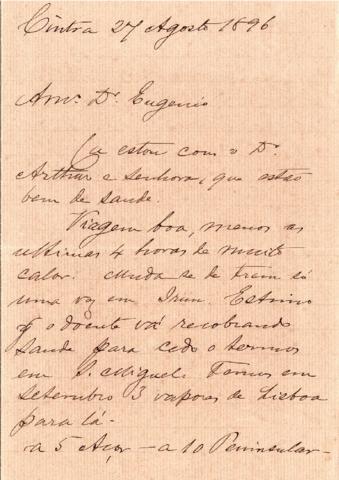 Cintra 27 Agosto 1896
Amo. Dr. Eugenio
Cá estou com o Dr.
Arthur e senhora, que estão
bem de saude.
Viagem boa, menos as
ultimas 4 horas de muito
calor. Muda-se de trem só
uma vez em Irun. Estimo
q o doente vá recobrando
saude para cedo o termos
em S. Miguel. Temos em
setembro 3 vapores de Lisboa
para lá -
a 5 Açôr - a 10 Peninsular -